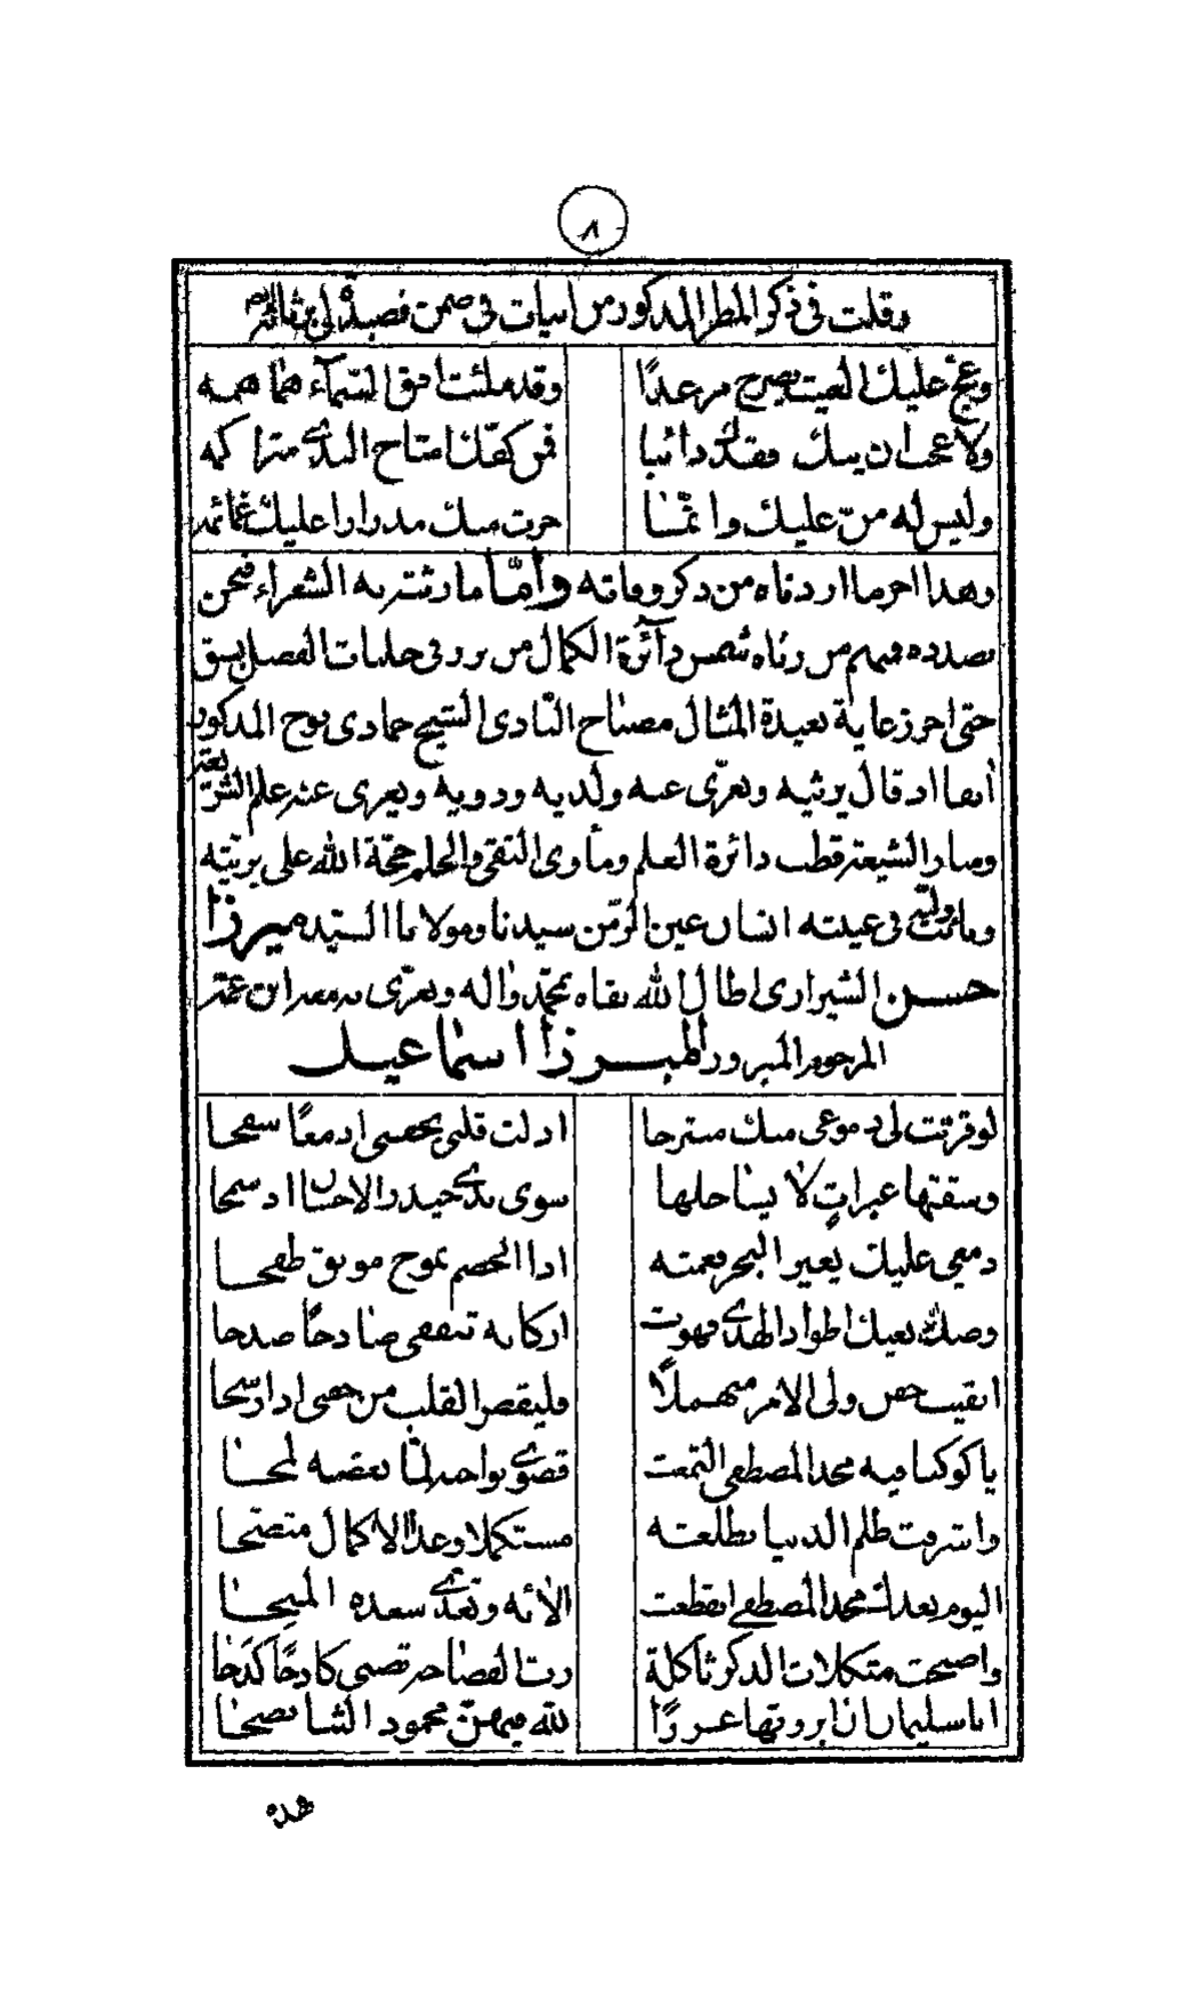 ٨
وقلت في ذكر المطر المذكور من ابيات في ضمن قصيدة لي
وعج عليك الغيث يصرخ مرعدًا
وقد ملئت افق السماء هماهمه
ولا عجب ان يبك فقدك دائبا
فمن كفك امتاح الندى متراكمه
وليس له من عليك وانما
جرت منك مدرارا عليك غمائمه
وهذا اخر ما اردناه من ذكر وفاته وأمّا ما رثته به الشعراء فنحن
بصدده فمنهم من رثاه شمس دآئرة الكمال من برز في حلبات الفضل يسبق
حتى احرز غاية بعيدة المثال مصباح النادى الشيخ حمادى نوح المذكور
أنفا اذ قال يرثيه ويعزّى عنه ولديه وذويه ويعزى عنه علم الشريعة
ومنار الشيعة قطب دائرة العلم ومأوى التقى والحلم حجّة الله على بريّته
في غيبته انسان عين الزمن سيدنا ومولانا السيد ميرزا
حسن الشيرازى اطال الله بقاه بمحمّد واله ويعزّى به ابن عمّه
المرحوم المبرور الميرزا اسماعيل
لو قرّبت لي دموعى منك منتزحا
اذلت قلبى بجفنى ادمعًا سفحا
وسقتها عبراتٍ لا يساحلها
سوى ندى حيدر الاحسان اذ سمحا
دمعى عليك يعير البحر فعمته
اذا الخضم بموج موبق طفحا
نعيك اطواد الهدى فهوت
اركانه صادحًا صدحا
ولى الامر منهملًا
القلب من
يا كوكبا فيه مجد المصطفى التمعت
قصوى بواحد لما بعضه لمحا
واشرقت ظلم الدنيا بطلعته
مستكملا وغدا الاكمال متضحا
اليوم بعدك مجد المصطفى انقطعت
الائه سعده المنحا
واصبحت مثكلات الذكر ثاكلة
ربّ الفصاحة كادحًا كدحا
ابا سليمان ان ابرزتها غررًا
لله فيهنّ محمود الثنا نصحا
هذه